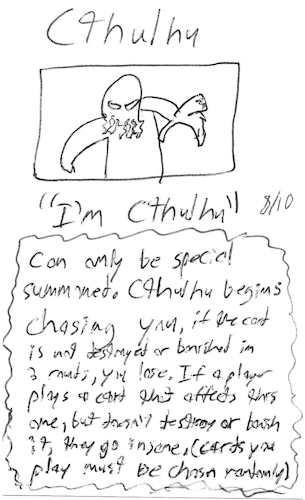 Cthulhu
"I'm Cthulhu" 8/10
Can only be special
summned. Cthulhu begins
chasing you, if the card
is not destroyed or banished in
3 turns, you lose. If a player
plays a card that affects this
one, but doesn't destroy or banish
it, they go insane. (cards you
play must be chosen randomly)